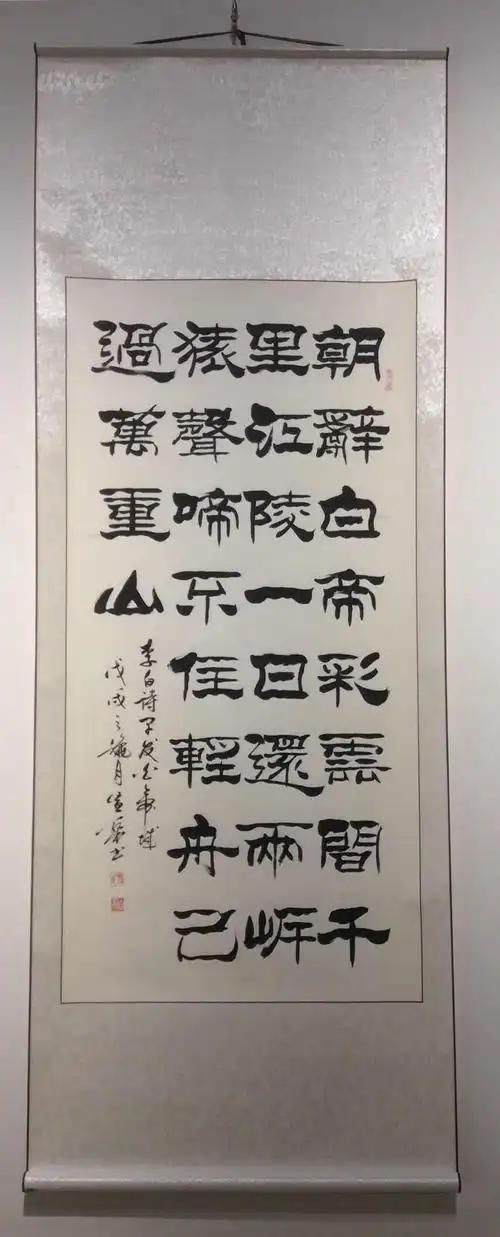 朝辭白帝彩雲間千
里江陵一日還兩岸
猿聲啼不住輕舟已
過萬重山
李白詩早发白帝城
戊戌之月書